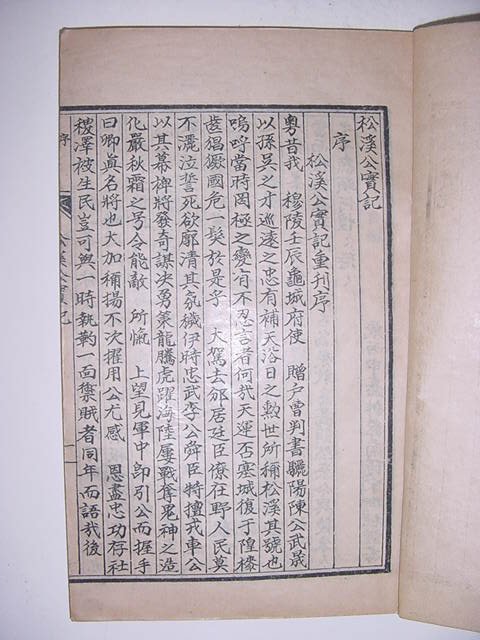 松溪公實記
序
松溪公實記重刊序
粤昔我 穆陵壬辰龜城府使 贈户曹判書驪陽陳公武晟
以孫吳之才巡遠之忠有補天浴日之勲世所稱松溪其號也
嗚呼當時罔極之變有不忍言者何哉天運否塞城復于隍
猖獗國危一髮於是乎 大駕去邠居廷臣僚在野人民莫
不灑泣誓死欲廓清其氛穢伊時忠武李公舜臣特擅戎車公
以其幕裨將發奇謀决勇策龍騰虎躍海陸屢戰奪鬼神之造
化嚴秋霜之号令能敵 所愾 上望見軍中即引公而握手
曰卿眞名將也大加稱揚不次擢用公尤感 恩盡忠功存社
稷澤被生民豈可與一時執靮一面禦賊者同年而語哉後
序
松溪公實記
一